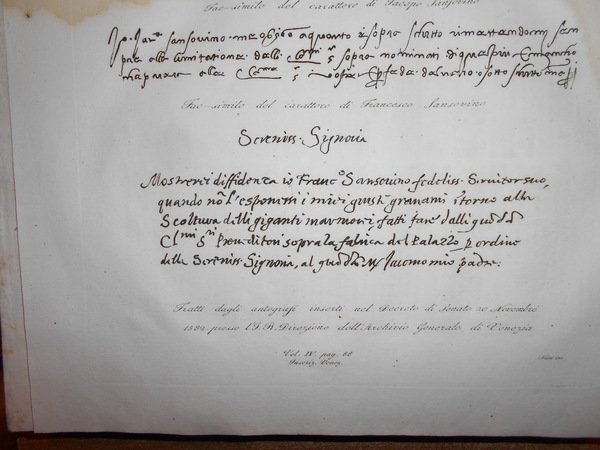 Fac-simile del carattere di Jacopo Sansovino
Jo. Jac.º Sansovino ma obligo a quanto è sopra schritto rimettandomi sen
pre alla limitatione dalli Cl.mi S.ri sopra nominati
Fac-simile del carattere di Francesco Sansovino
Sereniss. Signoria
Mostrerei diffidenza io Franc.º Sansovino fedeliss. Servitor suo,
quando nō l'esponessi i miei giusti gravami ĩtorno alla
Scoltura delli giganti marmorei, fatti fare dalli quōdd
Cl.mi S.ri Proveditori sopra la fabrica del Palazzo p ordine
della Sereniss. Signoria, al quōdd. M. Iacomo mio padre.
Tratti dagli autografi inserti nel Decreto di Senato 20 Novembre
1582 presso l'I. R. Direzione dell'Archivio Generale di Venezia
Vol. IV. pag. 88
Inscriz. Venez.